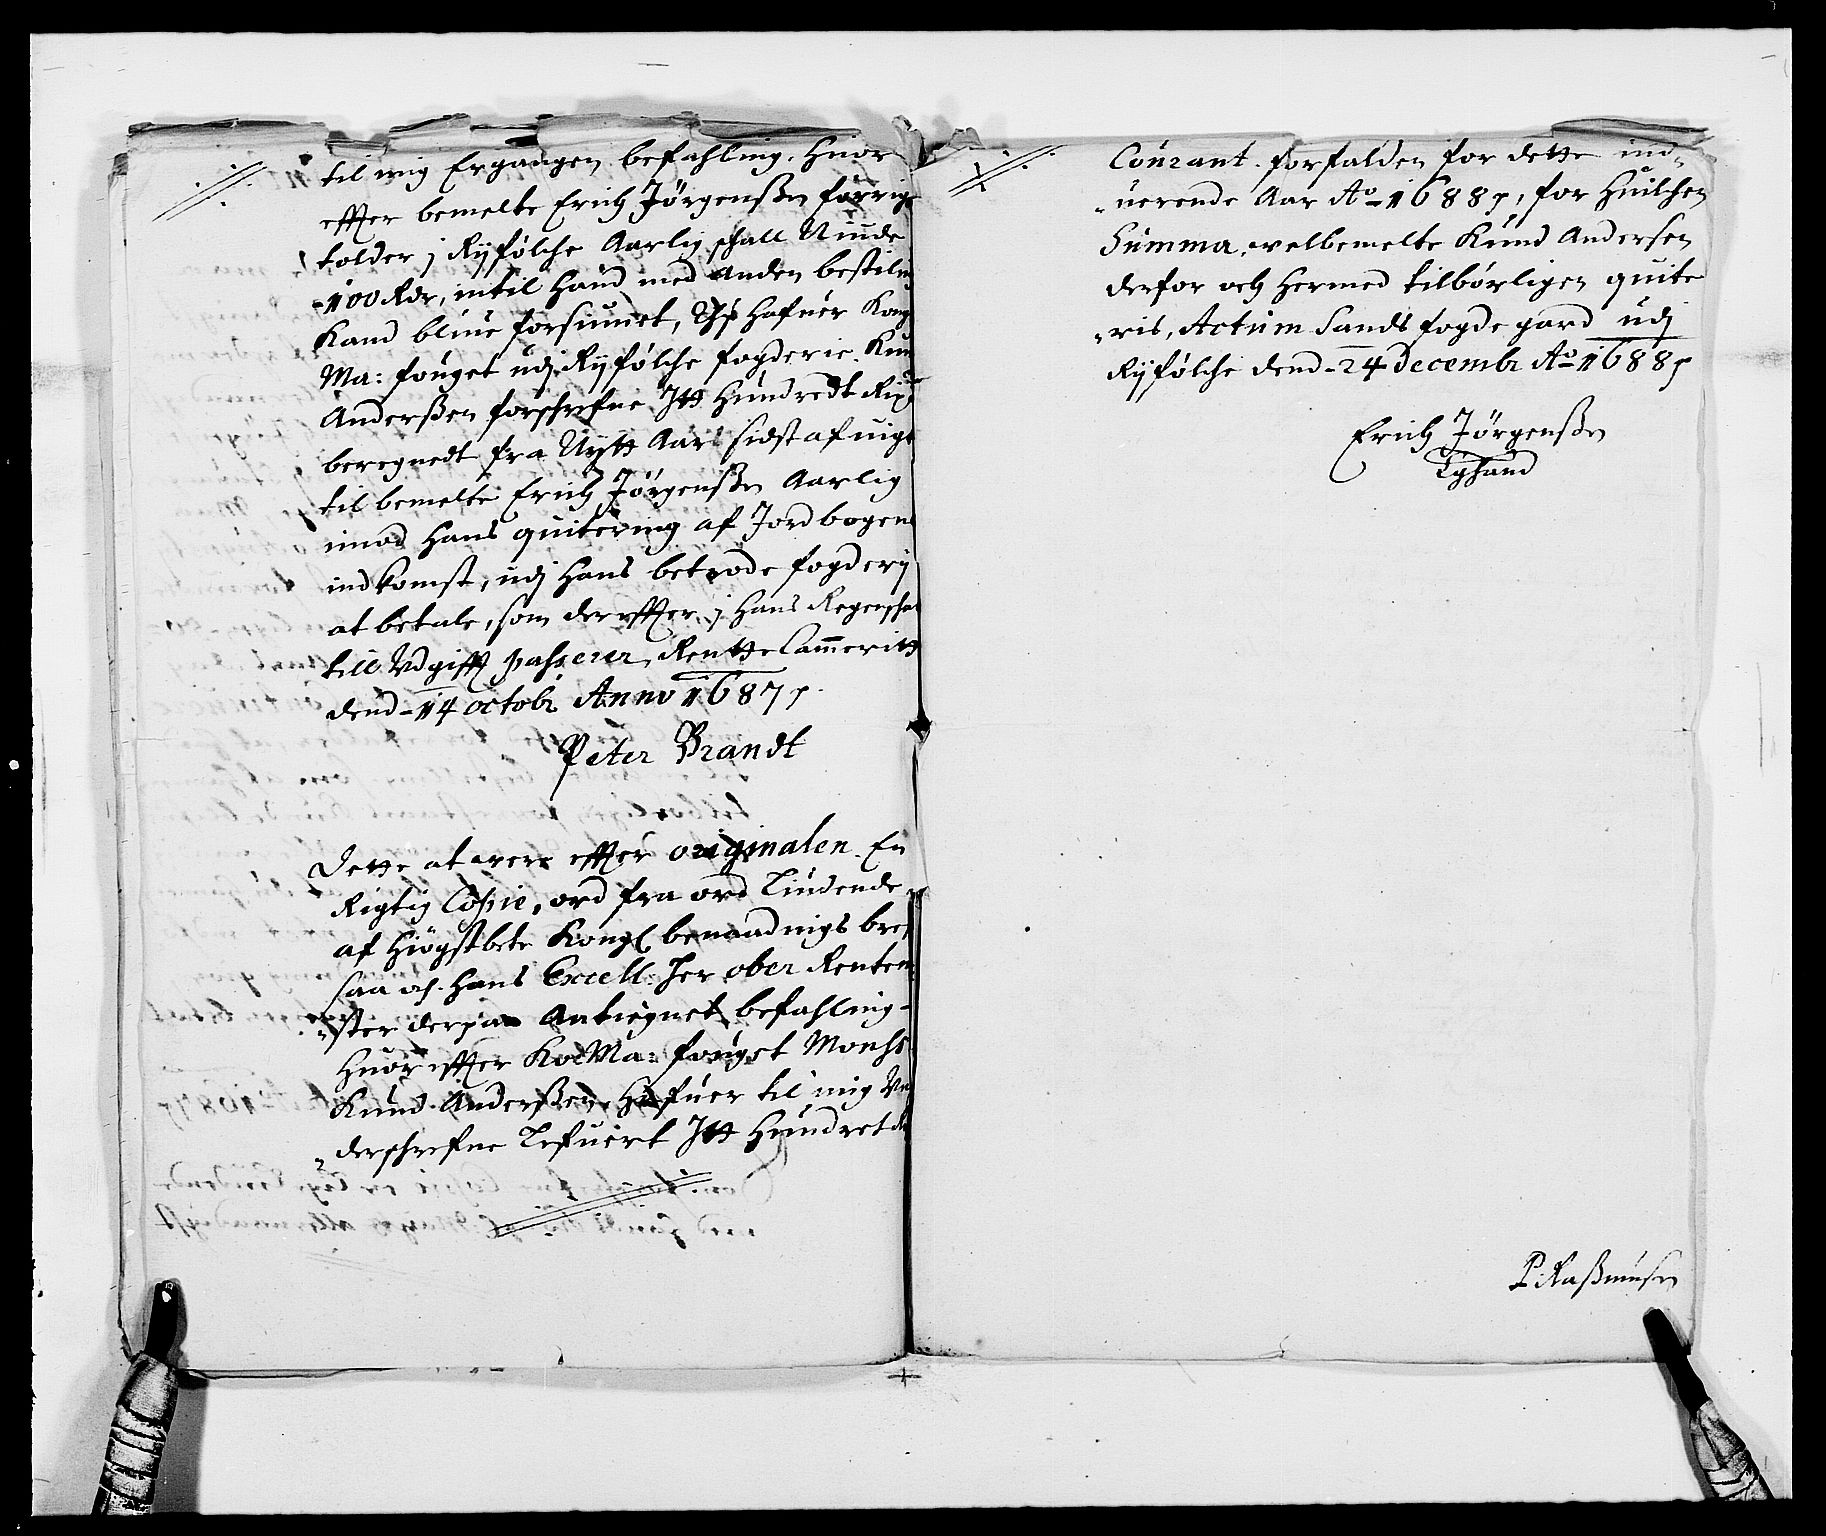 til mig Ergangen befahling. Huor
effter bemelte Erich Jørgenßen forrige
tolder j Ryfølche Aarlig schall Niude
100 Rdr, intil Hand med anden bestiln
Kand bliue forsiunet, Hafuer Kong
Ma: fouget udj Ryfølche fogderie. Knu
Anderßen forschrefne Itt Hundredt Rixd
beregnedt fra Nytt Aar sidst afuigt
til bemelte Erich Jørgenßen Aarlig
imod Hans quitering af Jordbogens
indkomst, udj Hans betrode fogderj
at betale, som dereffter j Hans Regensche
till Vdgifft passerer, RentteCammeritt
dend 14 octobr Anno 1687,
Peter Brandt
Dette at were effter originalen En
Rigtig Copie, ord fra ord Liudende
af Høigstbete Kongl benaadnigs bref
saa och Hans Excell: Her ober Rentem
ster derpaa Antegnet befahling
Huor effter KoeMa: fouget Monhs
Knud Anderßen Hafuer til mig Vn
derschrefne Lefuert Itt Hundret d
Courant forfalden for dette ind
uerende Aar Ao 1688, for Huilchen
Summa, welbemelte Knud Andersen
derfor och Hermed tilbørligen quite
ris, Actum Sands fogde gard udj
Ryfølche dend 24 decembr Ao 1688,
Erich Jørgenßen
Eghand
P Raßmußen